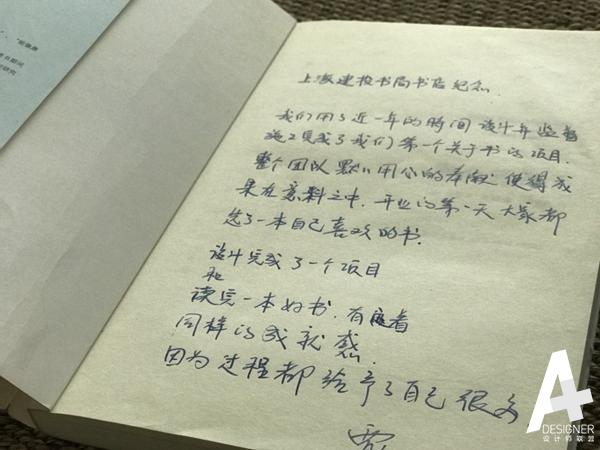 上海建投书局书店纪念.
我们用了近一年的时间设计并监督
施工完成了我们第一个关于书的项目.
整个团队默默用心的奉献使得成
果在意料之中. 开业的第一天大家都
选了一本自己喜欢的书.
设计完成了一个项目
和
读完一本好书. 有着
同样的成就感.
因为过程都给予了自己很多
A+
DESIGNER
设计师联盟